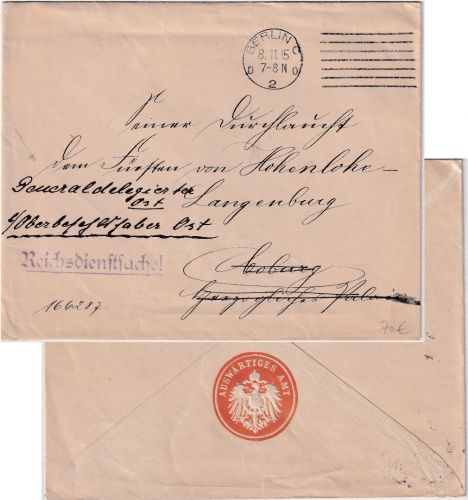 BERLIN C
8.11.15
7-8 N
D O
2
Seiner Durchlaucht
dem Fürsten von Hohenlohe-
Langenburg
Generaldelegierter
Ost
b/Oberbefehlshaber Ost
Reichsdienstsache!
Coburg
Herzogliches Palais
166287
70€
AUSWÄRTIGES AMT